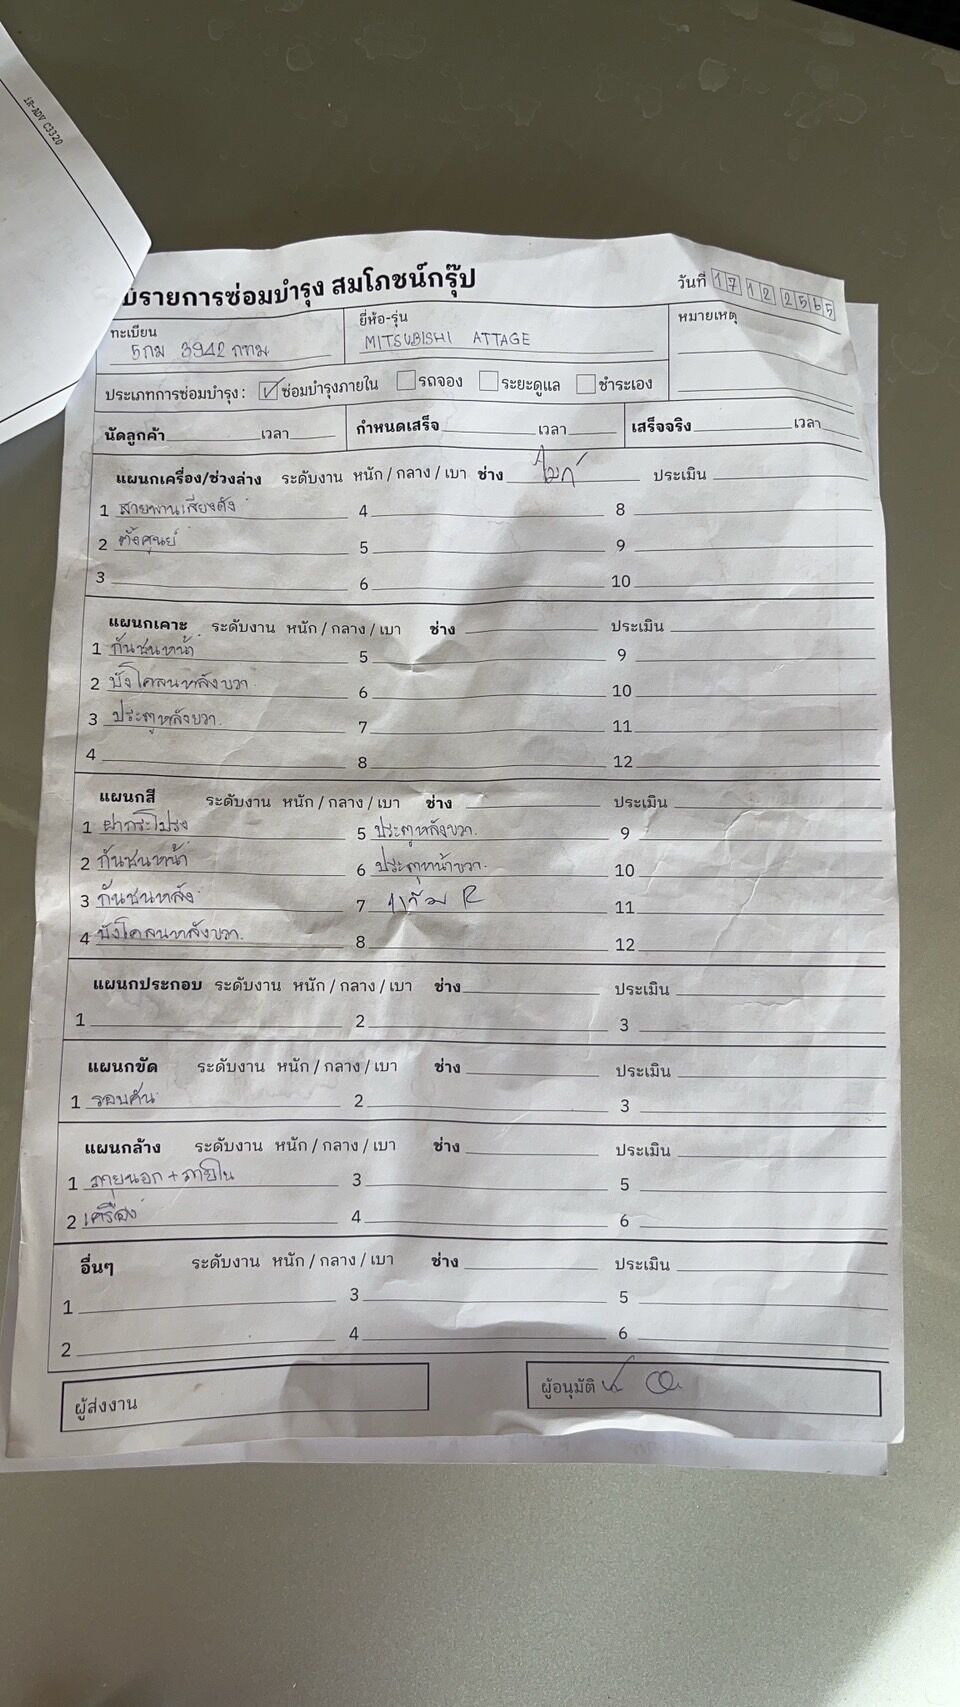 iR-ADV C3320
บรายการซ่อมบำรุง สมโภชน์กรุ๊ป
วันที่ 17 12 2565
ทะเบียน 5กม 3942 กทม
ยี่ห้อ-รุ่น MITSUBISHI ATTAGE
หมายเหตุ
ประเภทการซ่อมบำรุง : ซ่อมบำรุงภายใน รถจอง ระยะดูแล ชำระเอง
นัดลูกค้า เวลา กำหนดเสร็จ เวลา เสร็จจริง เวลา
แผนกเครื่อง/ช่วงล่าง ระดับงาน หนัก / กลาง / เบา ช่าง ประเมิน
1 สายพานเสียงดัง 4 8
2 ตั้งศูนย์ 5 9
3 6 10
แผนกเคาะ ระดับงาน หนัก / กลาง / เบา ช่าง ประเมิน
1 กันชนหน้า 5 9
2 บังโคลนหลังขวา 6 10
3 ประตูหลังขวา 7 11
4 8 12
แผนกสี ระดับงาน หนัก / กลาง / เบา ช่าง ประเมิน
1 ฝากระโปรง 5 ประตูหลังขวา 9
2 กันชนหน้า 6 ประตูหน้าขวา 10
3 กันชนหลัง 7 แก้ม R 11
4 บังโคลนหลังขวา 8 12
แผนกประกอบ ระดับงาน หนัก / กลาง / เบา ช่าง ประเมิน
1 2 3
แผนกขัด ระดับงาน หนัก / กลาง / เบา ช่าง ประเมิน
1 รอบคัน 2 3
แผนกล้าง ระดับงาน หนัก / กลาง / เบา ช่าง ประเมิน
1 ภายนอก + ภายใน 3 5
2 เครื่อง 4 6
อื่นๆ ระดับงาน หนัก / กลาง / เบา ช่าง ประเมิน
1 3 5
2 4 6
ผู้ส่งงาน
ผู้อนุมัติ